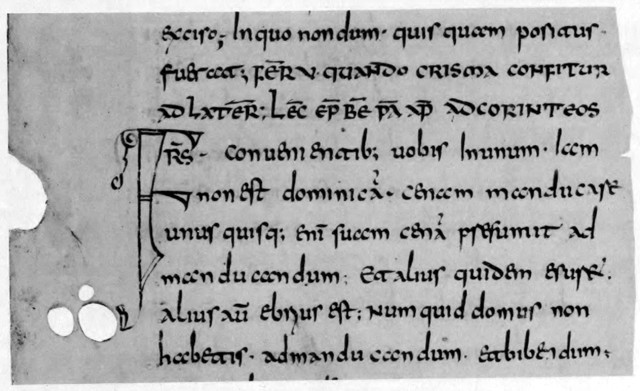 exciso; In quo nondum· quisquam positus·
fuerat; FER V· QUANDO CRISMA CONFITUR
AD LATER̄; LEC̄ EP̄ BĒ PĀ AP̄ AD CORINTEOS
FR̄S· Convenientib; uobis In unum· Iam
non est dominicā· cenam manducare
unusquisq; enī suam cenā p̄sesumit ad
manducandum; Et alius quidem esurit·
alius aū ebrius est; Numquid domus non
habetis· ad manducandum· et bibendum;